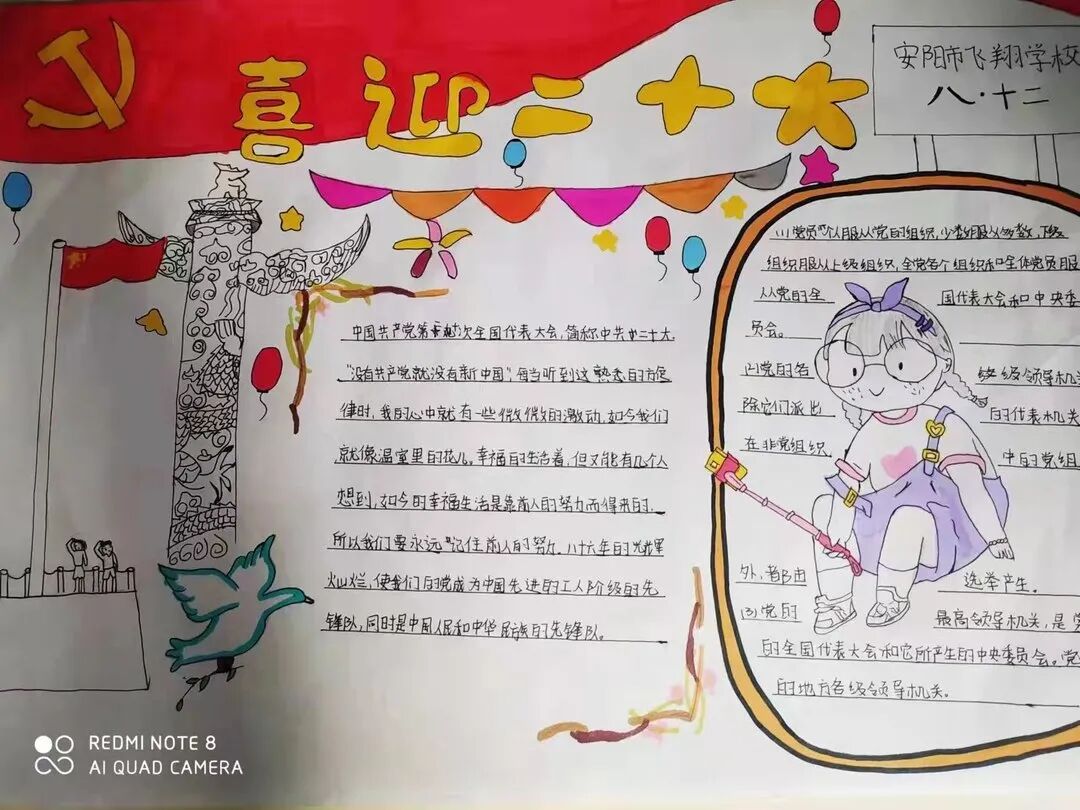 喜迎二十大
安阳市飞翔学校
八·十二
中国共产党第二十次全国代表大会,简称中共二十大.
"没有共产党就没有新中国",每当听到这熟悉的旋
律时,我的心中就有一些微微的激动,如今我们
就像温室里的花儿.幸福的生活着,但又能有几个人
想到,如今的幸福生活是靠前人的努力而得来的.
所以我们要永远记住前人的努力.八十六年的光辉
灿烂,使我们的党成为中国先进的工人阶级的先
锋队,同时是中国人民和中华民族的先锋队.
(1)党员个人服从党的组织,少数服从多数,下级
组织服从上级组织,全党各个组织和全体党员服
从党的全 国代表大会和中央委
员会.
(2)党的各 级领导机关
除它们派出 的代表机关
在非党组织 中的党组
外,都由 选举产生.
(3)党的 最高领导机关,是党
的全国代表大会和它所产生的中央委员会.党
的地方各级领导机关.
REDMI NOTE 8
AI QUAD CAMERA